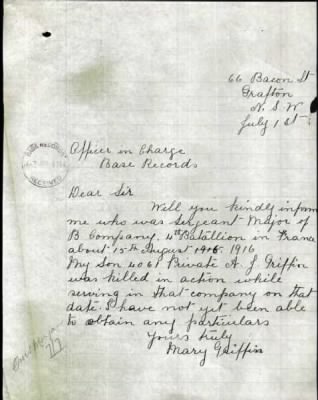 66 Bacon St
Grafton
N. S. W
July 1st
BASE RECORDS
RECEIVED
Officer in Charge
Base Records
Dear Sir
Will you kindly inform
me who was Sergeant Major of
B Company, 4th Batallion in France
about 15th August 1916. 1916
My Son 4061 Private A. J Griffin
was killed in action while
serving in that company on that
date. I have not yet been able
to obtain any particulars
Yours truly
Mary Griffin
7/7